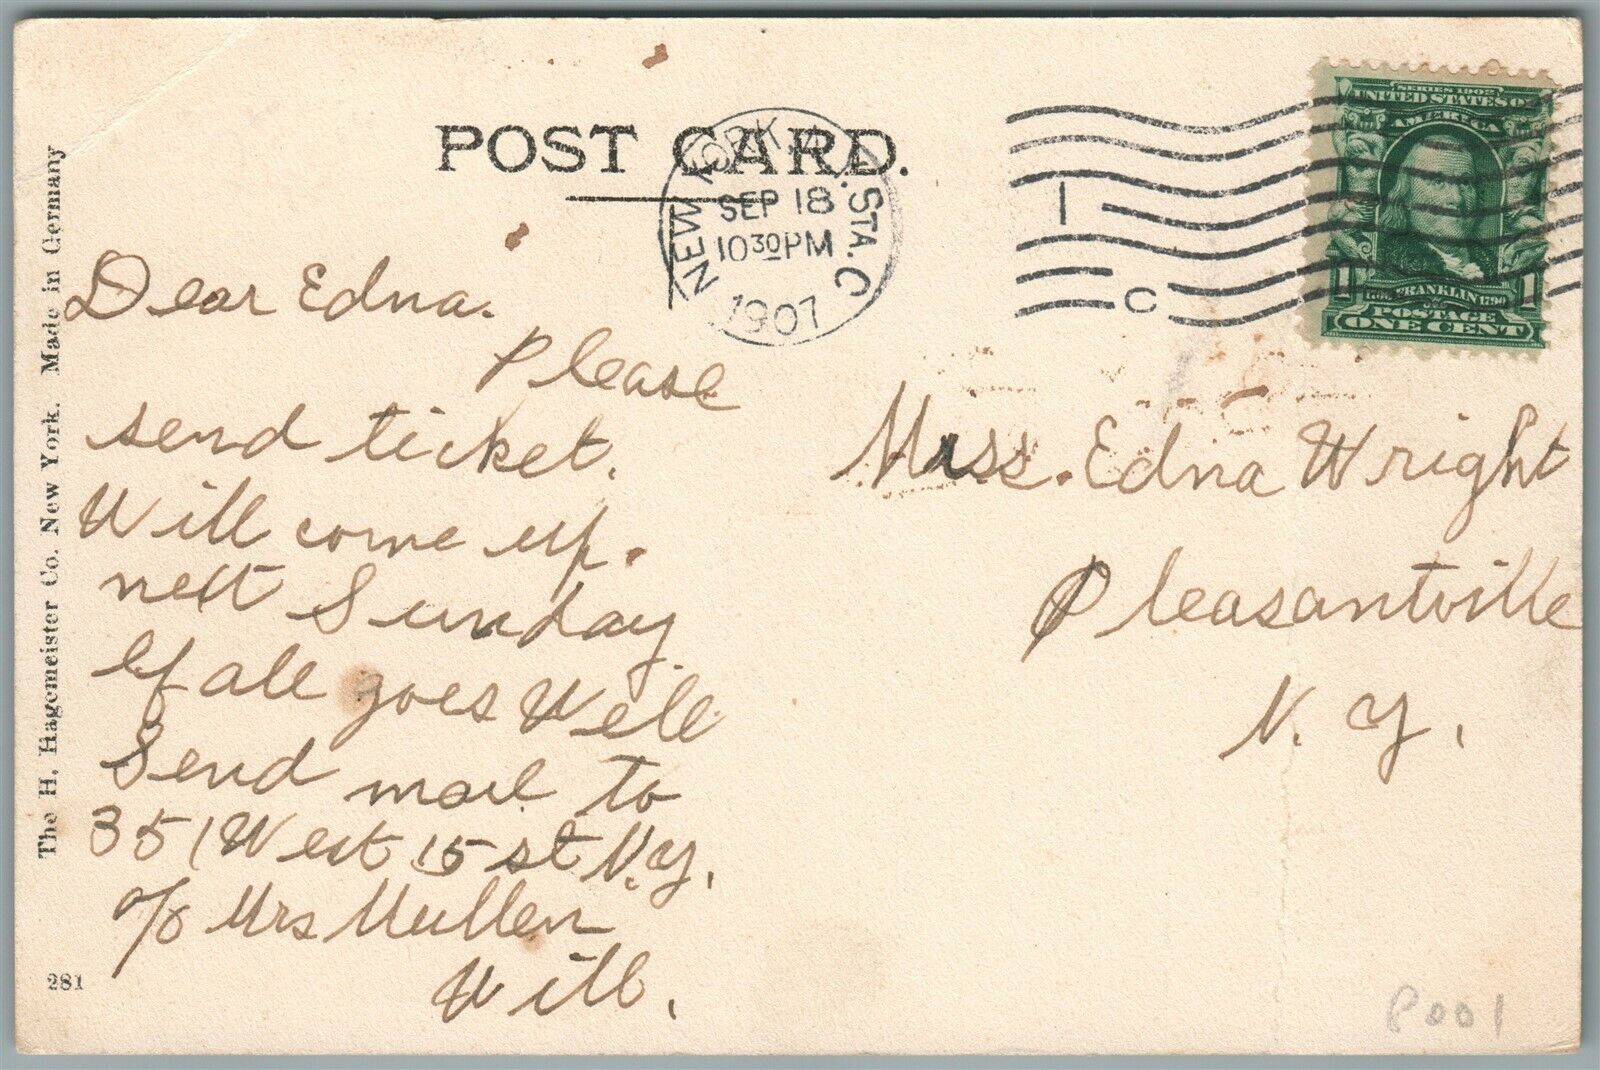 POST CARD.
NEW YORK, N.Y. STA. C
SEP 18
10 30 PM
1907
1
C
SERIES 1902
UNITED STATES OF
AMERICA
1706 FRANKLIN 1790
POSTAGE
ONE CENT
The H. Hagemeister Co. New York. Made in Germany
281
Dear Edna.
Please
send ticket.
Will come up.
next Sunday.
If all goes Well
Send mail to
351 West 15 st N.Y.
c/o Mrs Mullen
Will.
Miss. Edna Wright
Pleasantville
N. Y.
P001